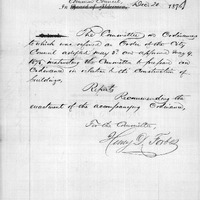 Common Council,
In Board of Aldermen, Dec. 20 1875
The Committee on Ordinances
to which was referred an Order of the City
Council adopted May 3d and approved May 4
1875 instructing the Committee to prepare an
Ordinance in relation to the Construction of
buildings,
Report
Recommending the
enactment of the accompanying Ordinance,
For the Committee
Henry D. Forbes